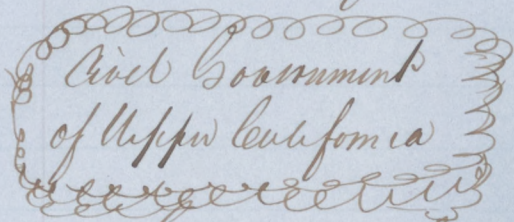 Civil Government
of Upper California